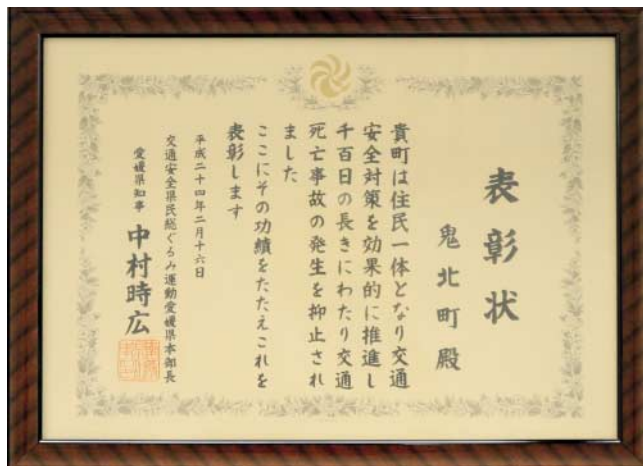 表彰状
鬼北町殿
貴町は住民一体となり交通
安全対策を効果的に推進し
千百日の長きにわたり交通
死亡事故の発生を抑止され
ました
ここにその功績をたたえこれを
表彰します
平成二十四年二月十六日
交通安全県民総ぐるみ運動愛媛県本部長
愛媛県知事 中村時広